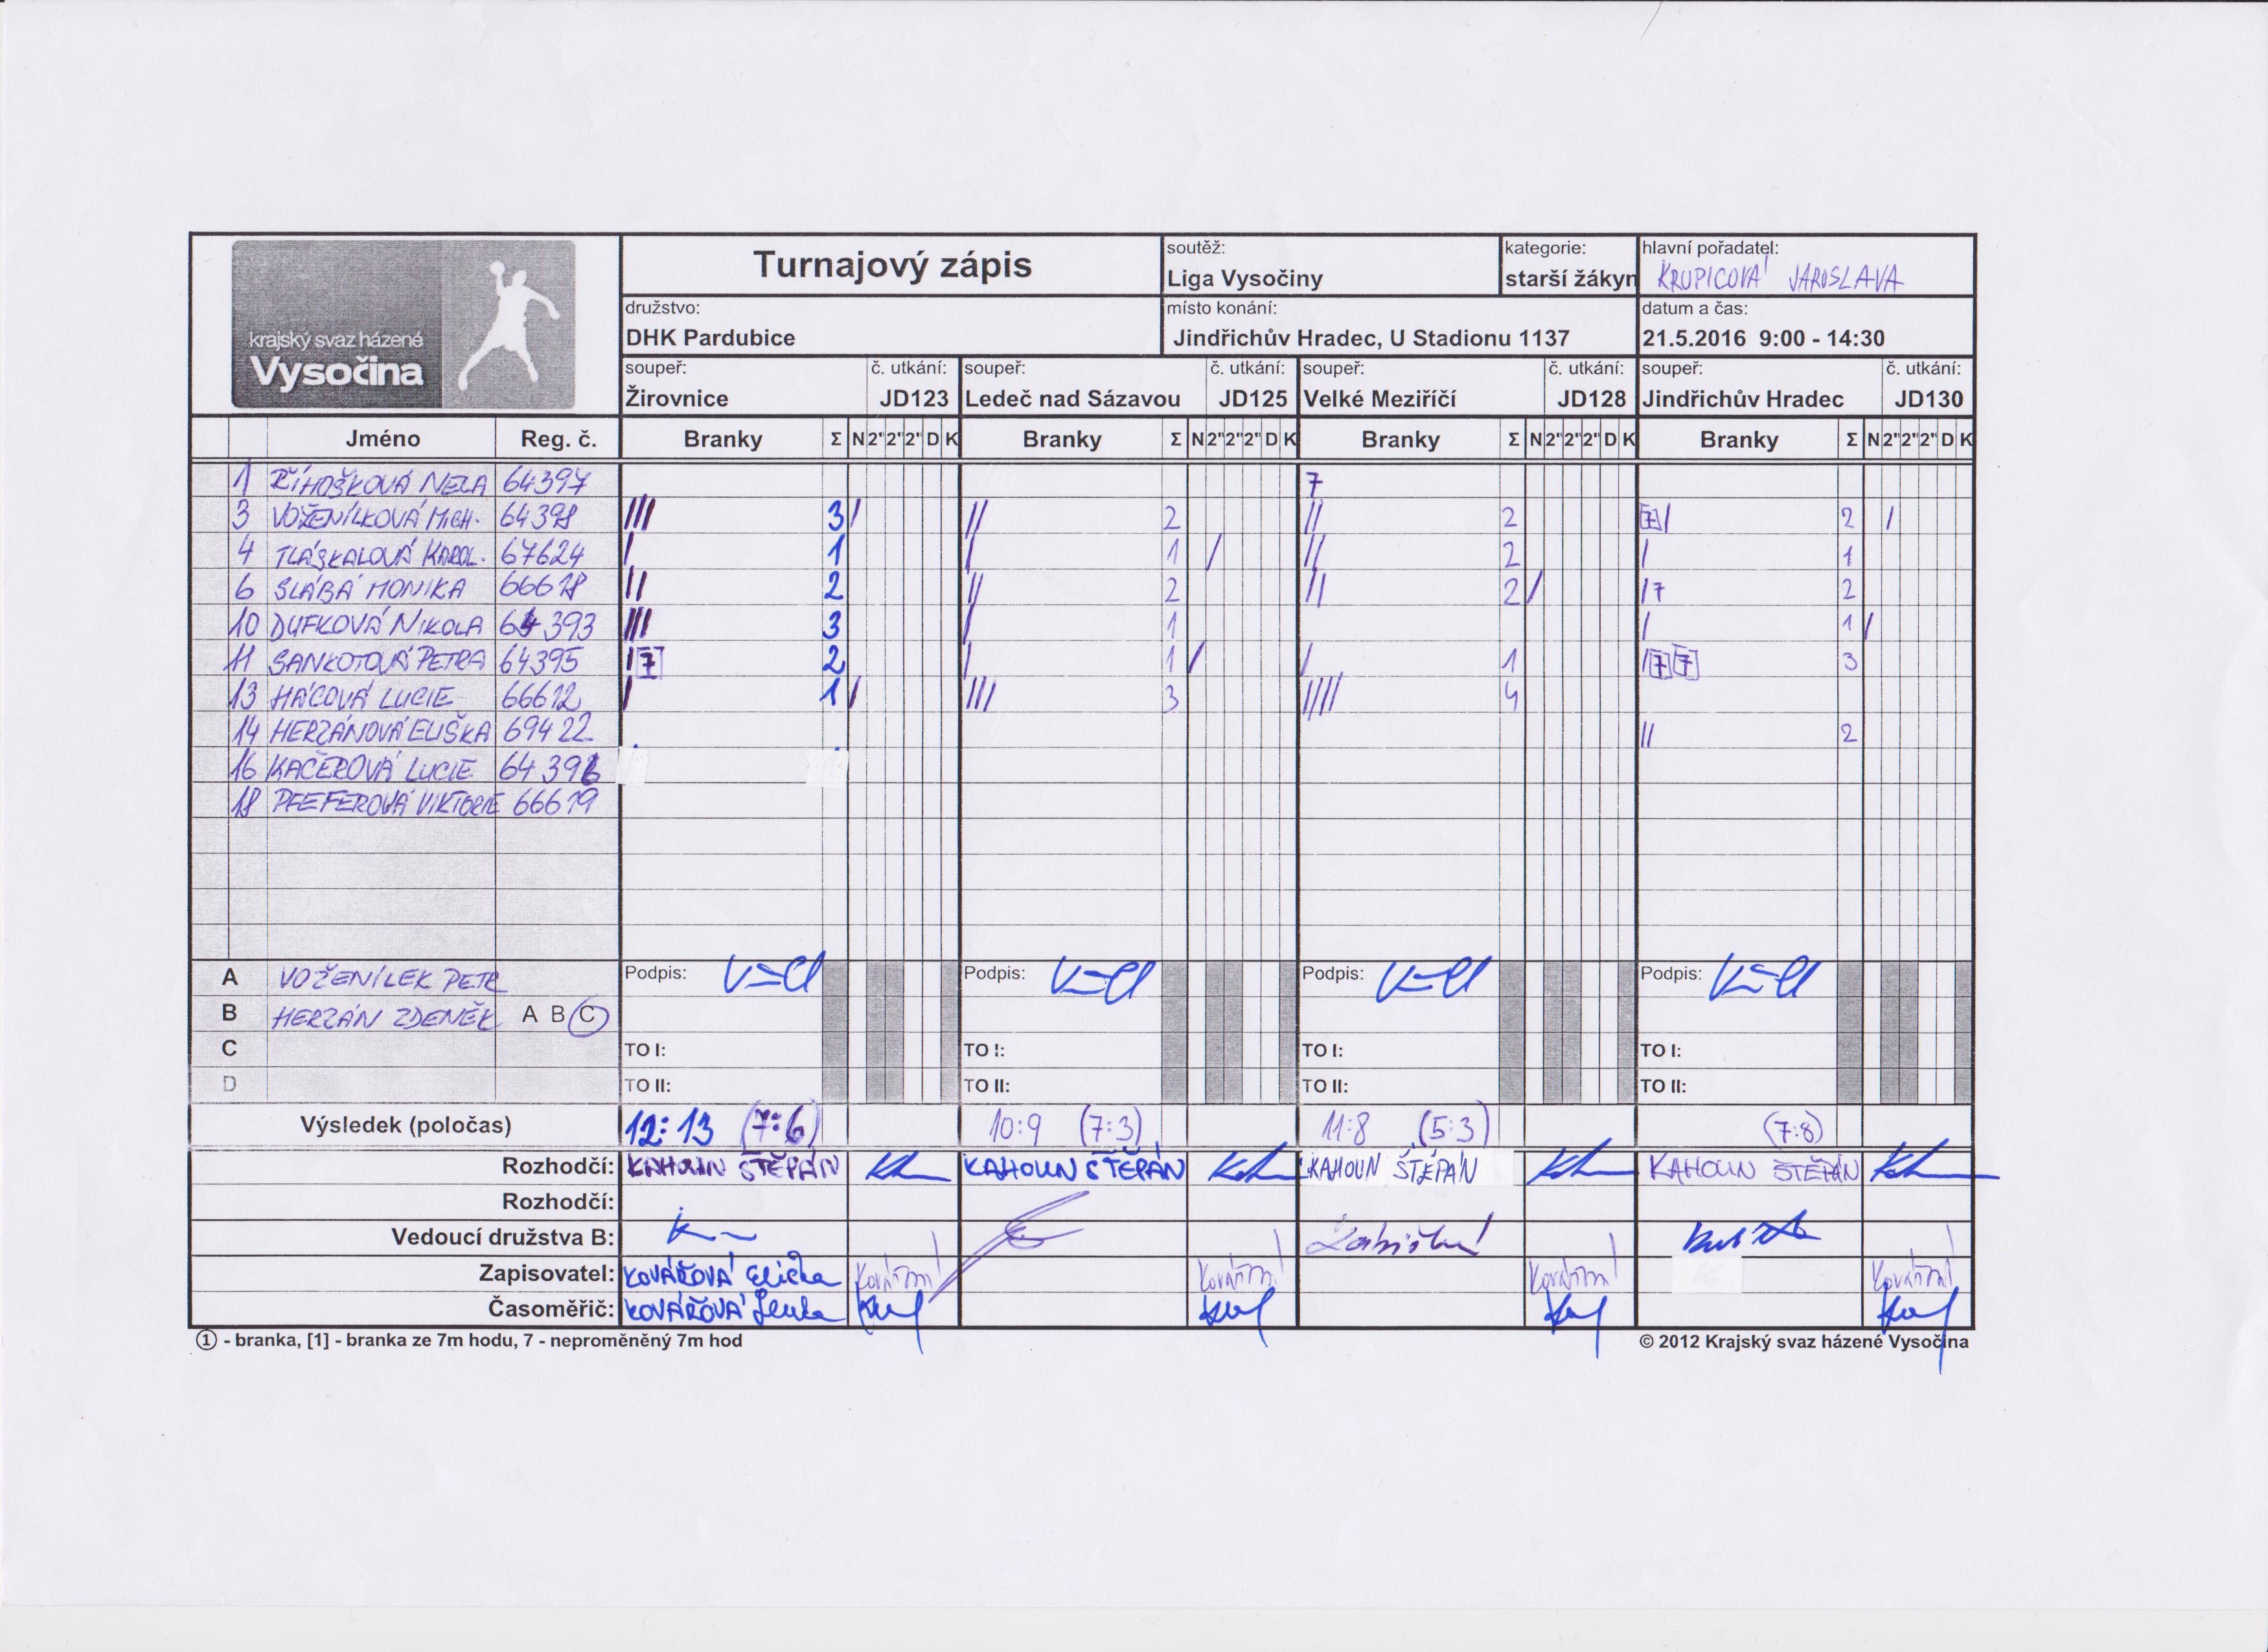 krajský svaz házené
Vysočina
Turnajový zápis
soutěž:
Liga Vysočiny
kategorie:
starší žákyn
hlavní pořadatel:
KRUPICOVÁ JAROSLAVA
družstvo:
DHK Pardubice
místo konání:
Jindřichův Hradec, U Stadionu 1137
datum a čas:
21.5.2016 9:00 - 14:30
soupeř: č. utkání: soupeř: č. utkání: soupeř: č. utkání: soupeř: č. utkání:
Žirovnice JD123 Ledeč nad Sázavou JD125 Velké Meziříčí JD128 Jindřichův Hradec JD130
Jméno Reg. č. Branky Σ N 2" 2" 2" D K Branky Σ N 2" 2" 2" D K Branky Σ N 2" 2" 2" D K Branky Σ N 2" 2" 2" D K
1 ŘÍHOŠKOVÁ NELA 64397 7
3 VOŽENÍLKOVÁ MICH. 64398 /// 3 / // 2 // 2 [7]/ 2 /
4 TLÁSKALOVÁ KAROL. 67624 / 1 / 1 / // 2 / 1
6 SLABÁ MONIKA 66618 // 2 // 2 // 2 / /7 2
10 DUFKOVÁ NIKOLA 64393 /// 3 / 1 / 1 /
11 SANKOTOVÁ PETRA 64395 /[7] 2 / 1 / / 1 /[7][7] 3
13 HÁCOVÁ LUCIE 66612 / 1 / /// 3 //// 4
14 HERZÁNOVÁ ELIŠKA 69422 // 2
16 KAČEROVÁ LUCIE 64396
18 PFEFEROVÁ VIKTORIE 66619
A VOŽENÍLEK PETR Podpis: Podpis: Podpis: Podpis:
B HERZÁN ZDENĚK A B C
C TO I: TO I: TO I: TO I:
D TO II: TO II: TO II: TO II:
Výsledek (poločas) 12:13 (7:6) 10:9 (7:3) 11:8 (5:3) (7:8)
Rozhodčí: KAHOUN ŠTĚPÁN KAHOUN ŠTĚPÁN KAHOUN ŠTĚPÁN KAHOUN ŠTĚPÁN
Rozhodčí:
Vedoucí družstva B:
Zapisovatel: KOVÁŘOVÁ Kovářová Kovářová Kovářová Kovářová
Časoměřič: KOVÁŘOVÁ Lenka
① - branka, [1] - branka ze 7m hodu, 7 - neproměněný 7m hod
© 2012 Krajský svaz házené Vysočina